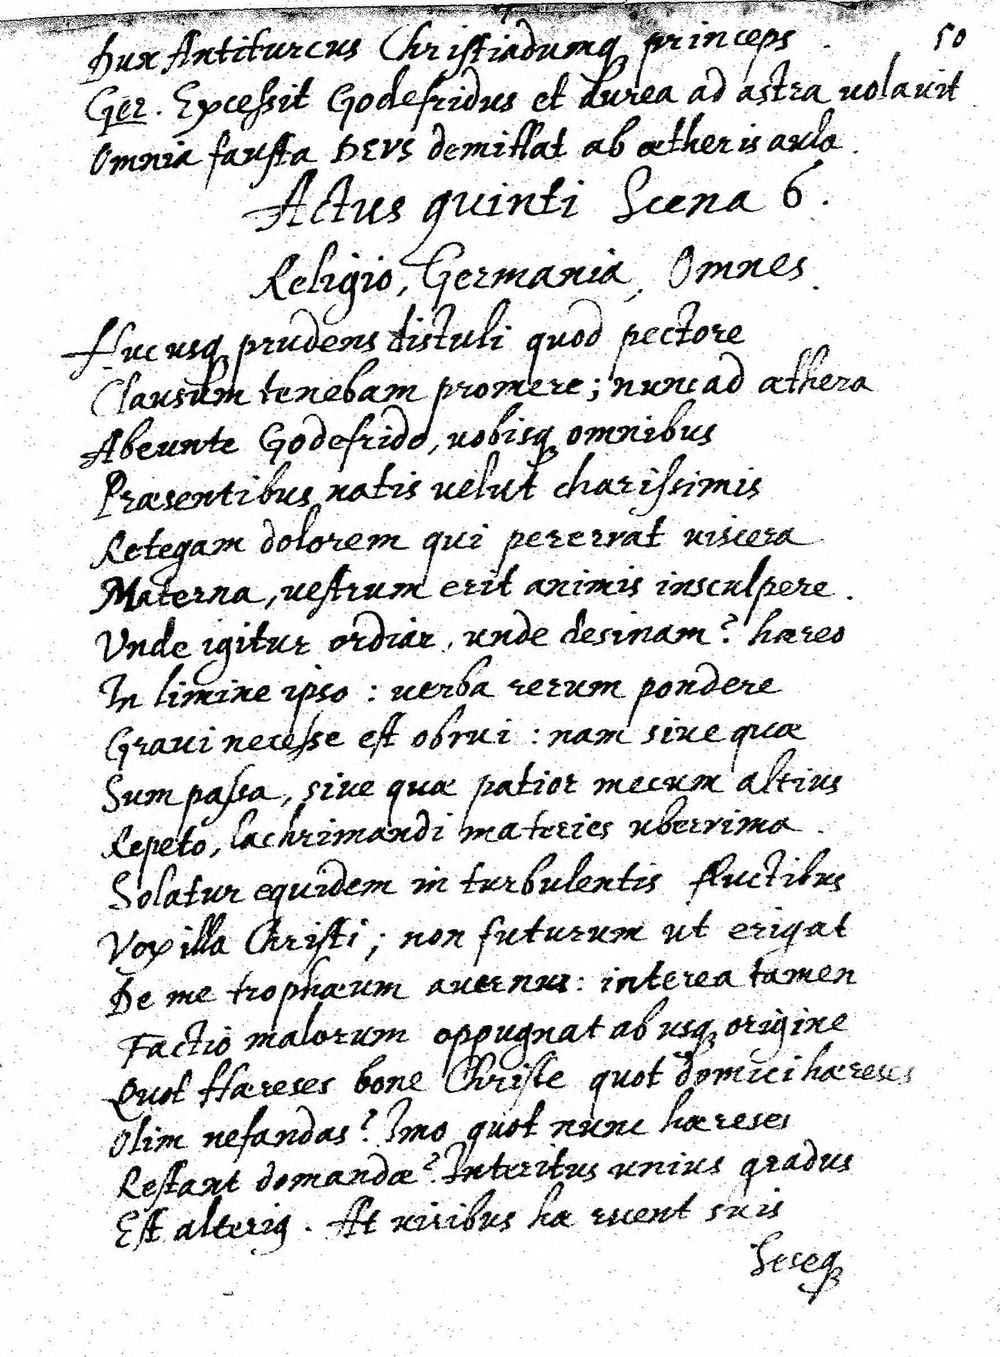 Dux Antiturcus Christiadumq princeps . 50
Ger. Excessit Godefridus et aurea ad astra uolauit
Omnia fausta DEVS demittat ab ætheris aula .
Actus quinti Scena 6 .
Religio, Germania, Omnes .
Hucusq prudens distuli quod pectore
Clausum tenebam promere; nunc ad æthera
Abeunte Godefrido, uobisq omnibus
Præsentibus natis uelut charissimis
Retegam dolorem qui pererrat uiscera
Materna, uestrum erit animis insculpere .
Vnde igitur ordiar, unde desinam? hæreo
In limine ipso : uerba rerum pondere
Graui necesse est obrui : nam siue quæ
Sum passa, siue quæ patior mecum altius
Repeto, lachrimandi materies uberrima .
Solatur equidem in turbulentis fluctibus
Vox illa Christi; non futurum ut erigat
De me trophæum auernus: interea tamen
Factio malorum oppugnat ab usq origine
Quot Hæreses bone Christe quot domui hæreses
Olim nefandas? Imo quot nunc hæreses
Restant domandæ? Interitus unius gradus
Est alterius . At uiribus hæ ruent suis
Seseq